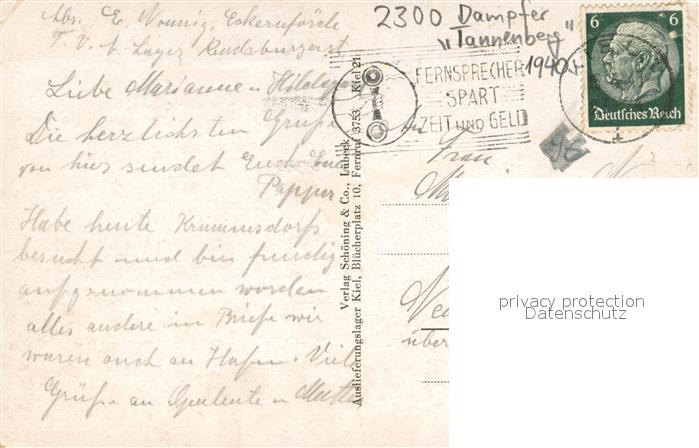 Abs. E. Wonnig, Eckernförde
T. V. A. Lager Rendsburgerst
Liebe Marianne u.
Die herzlichsten Grüße
von hier sendet Euch Euer
Papper
Habe heute Krummsdorfs
besucht und bin freudig
aufgenommen worden
alles andere im Briefe wir
waren auch am Hafen. Viele
Grüße an u Mutter
Verlag Schöning & Co., Lübeck
Auslieferungslager Kiel, Blücherplatz 10, Fernruf 3753 Kiel 21
2300 Dampfer
"Tannenberg"
1940
FERNSPRECHER
SPART
ZEIT UND GELD
6 6
Deutsches Reich
96
An
Frau
privacy protection
Datenschutz
über